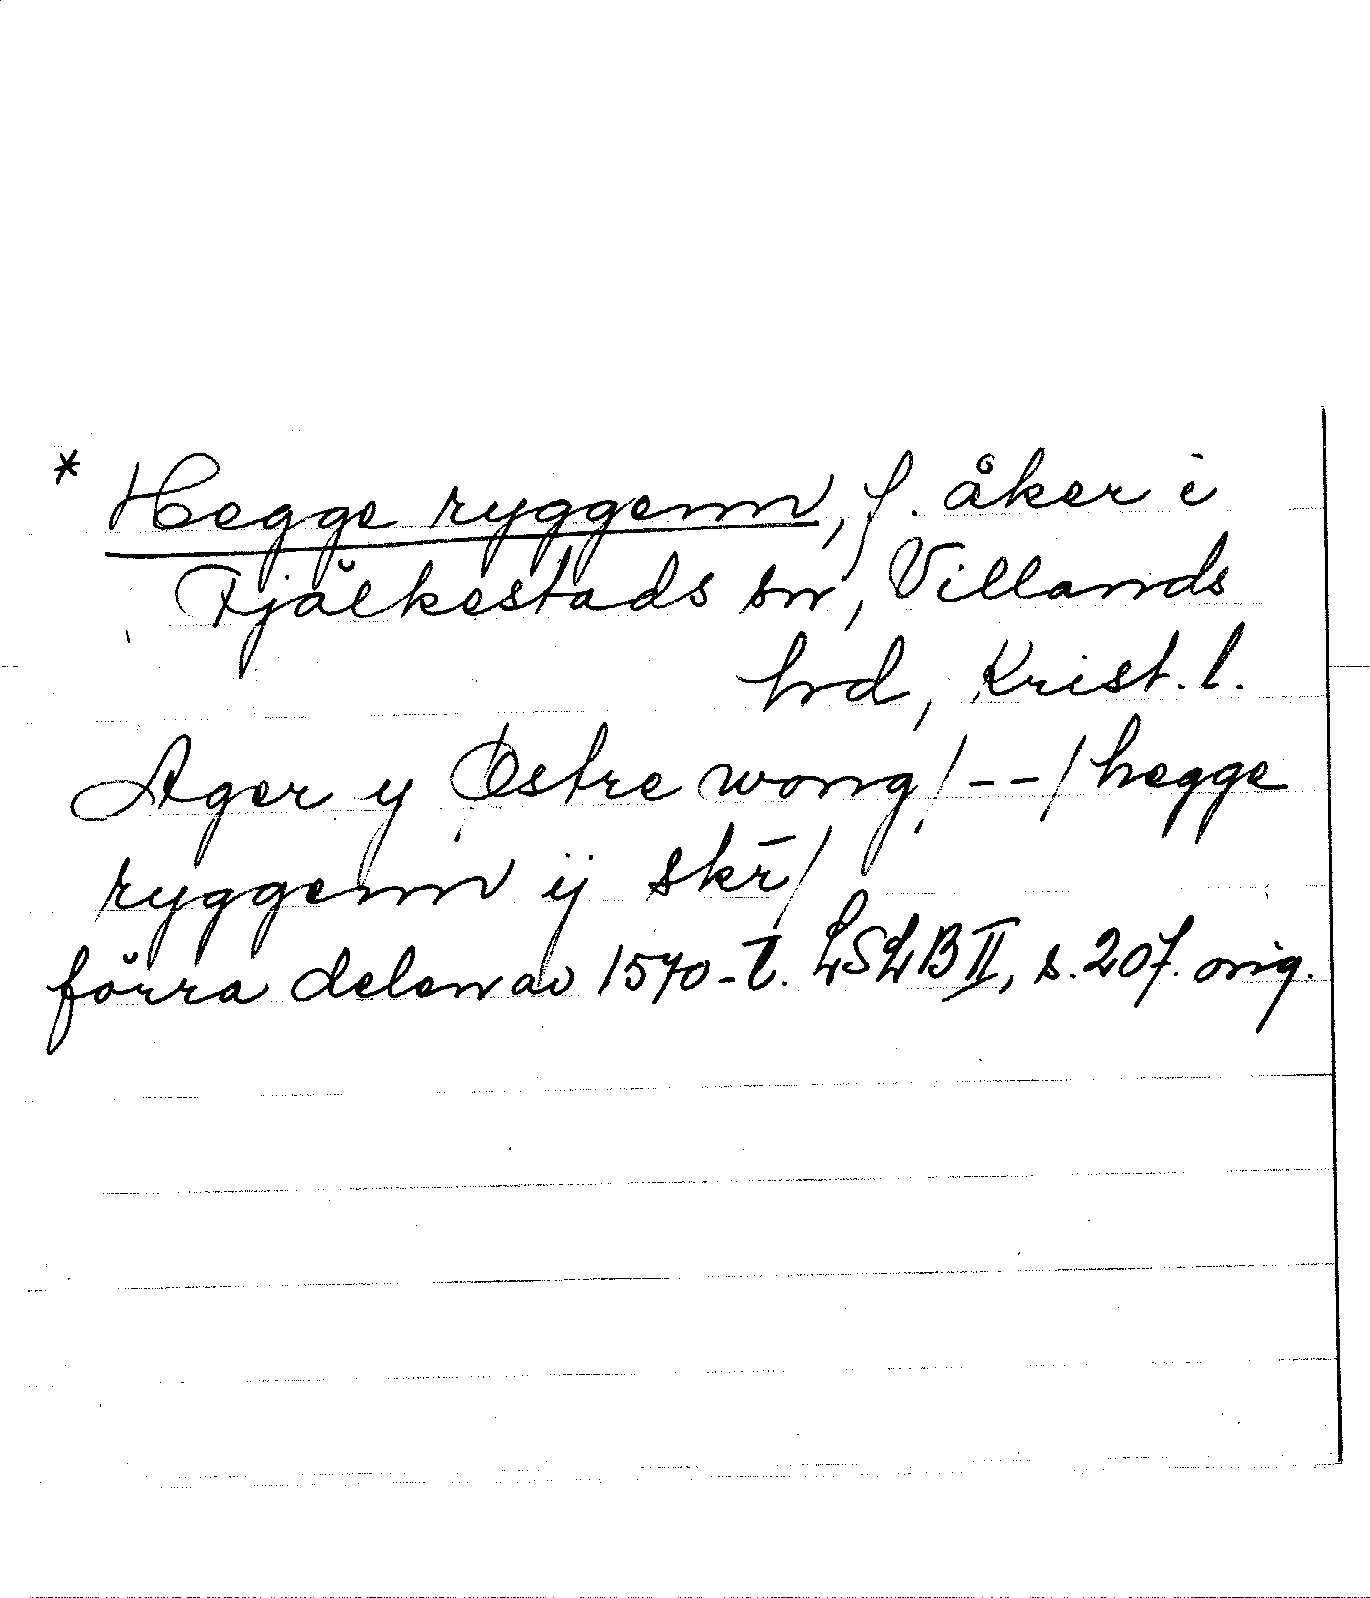 * Hegge ryggenn, f. åker i
Fjälkestads sn, Villands
hrd, Krist. l.
Ager y Østre wong /--/ hegge
ryggenn ij skr̄/
förra delen av 1570-t. LSLB II, s. 207. orig.